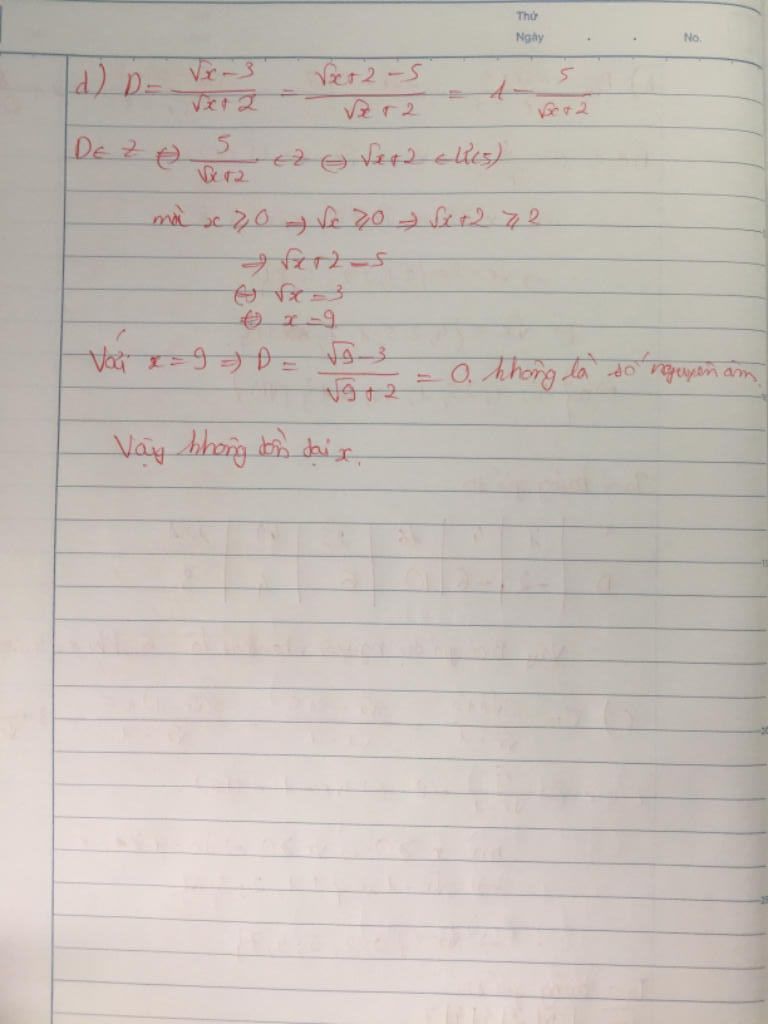 Thứ
Ngày . . No.
d) D = \frac{\sqrt{x} - 3}{\sqrt{x} + 2} = \frac{\sqrt{x} + 2 - 5}{\sqrt{x} + 2} = 1 - \frac{5}{\sqrt{x} + 2}
D ∈ Z ⇔ \frac{5}{\sqrt{x} + 2} ∈ Z ⇔ \sqrt{x} + 2 ∈ Ư(5)
mà x ⩾ 0 ⇒ \sqrt{x} ⩾ 0 ⇒ \sqrt{x} + 2 ⩾ 2
⇒ \sqrt{x} + 2 = 5
⇔ \sqrt{x} = 3
⇔ x = 9
Với x = 9 ⇒ D = \frac{\sqrt{9} - 3}{\sqrt{9} + 2} = 0. không là số nguyên âm.
Vậy không tồn tại x.